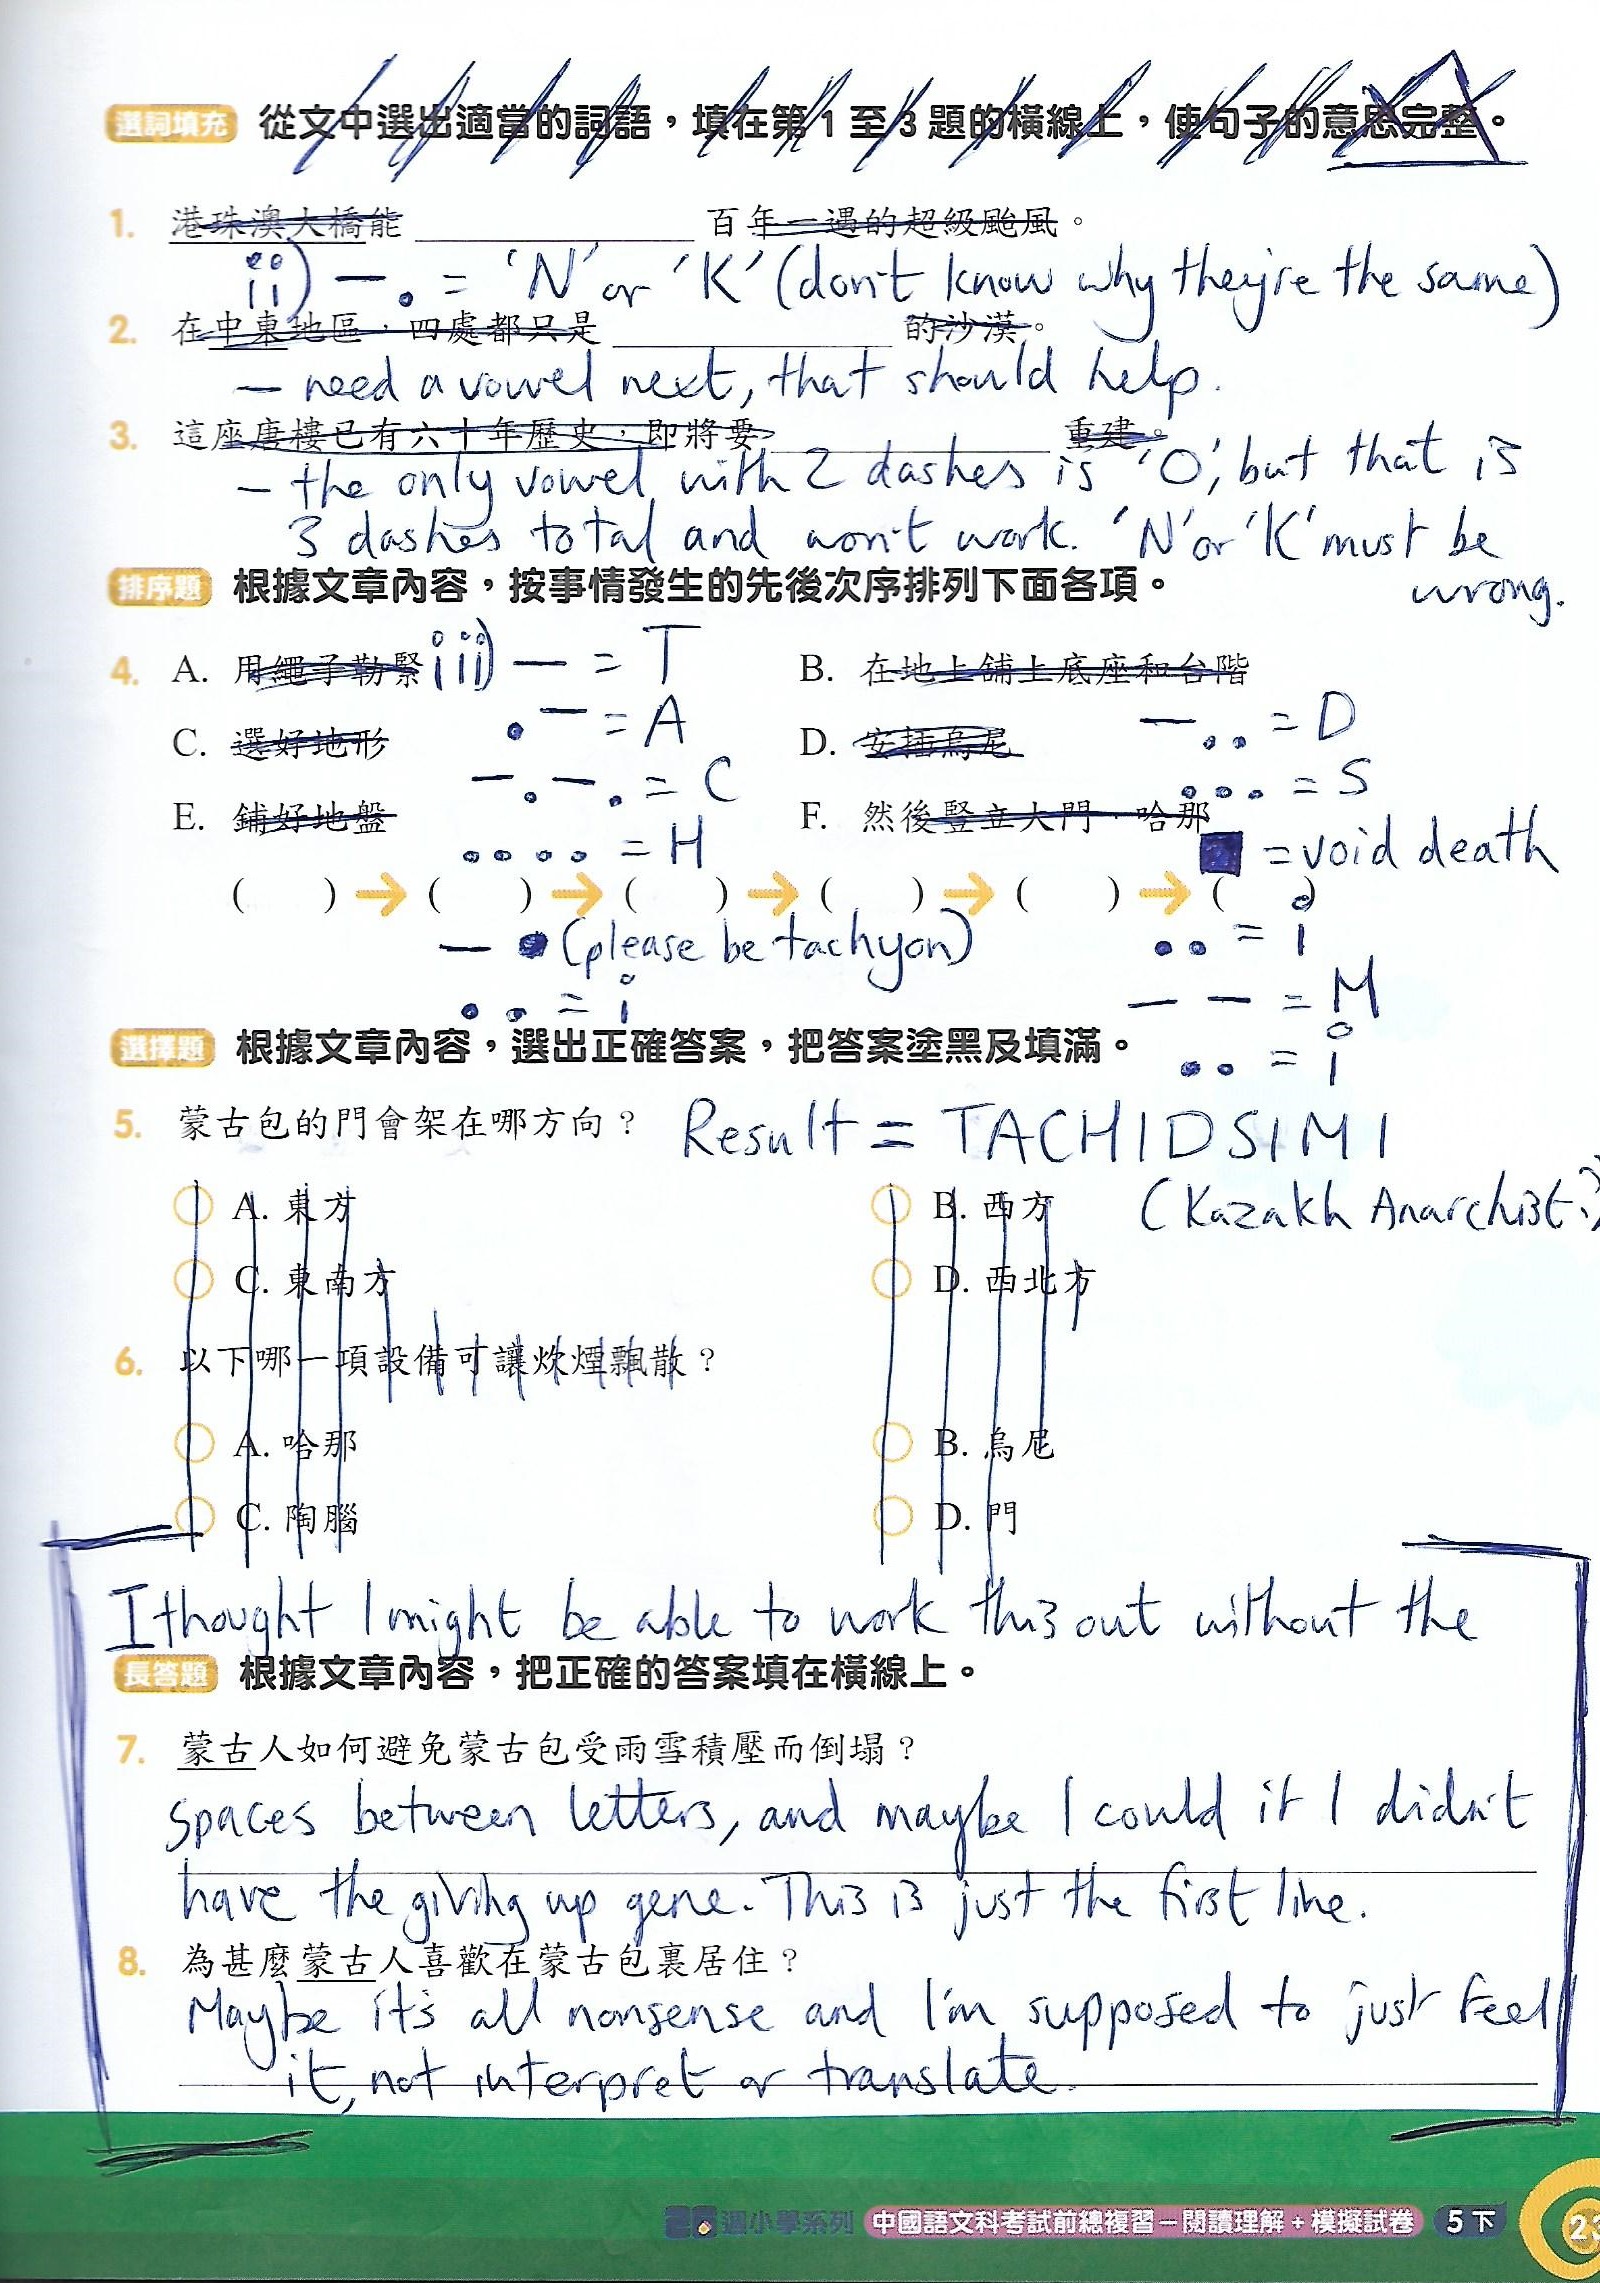 選詞填充 從文中選出適當的詞語，填在第1至3題的橫線上，使句子的意思完整。
1. 港珠澳大橋能 ____________ 百年一遇的超級颱風。
ii) — . = 'N' or 'K' (don't know why they're the same)
2. 在中東地區，四處都只是 ____________ 的沙漠。
— need a vowel next, that should help.
3. 這座唐樓已有六十年歷史，即將要 ____________ 重建。
— the only vowel with 2 dashes is 'O', but that is
3 dashes total and won't work. 'N' or 'K' must be
wrong.
排序題 根據文章內容，按事情發生的先後次序排列下面各項。
4. A. 用繩子勒緊 B. 在地上鋪上底座和台階
iii) — = T
. — = A — . . = D
C. 選好地形 D. 安插烏尼
— . — . = C . . . = S
E. 鋪好地盤 F. 然後豎立大門，哈那
. . . . = H ■ = void death
( ) → ( ) → ( ) → ( ) → ( ) → ( )
— . (please be tachyon) . . = i
. . = i — — = M
選擇題 根據文章內容，選出正確答案，把答案塗黑及填滿。
. . = i
5. 蒙古包的門會架在哪方向？ Result = TACHIDSIMI
A. 東方 B. 西方 (Kazakh Anarchist?)
C. 東南方 D. 西北方
6. 以下哪一項設備可讓炊煙飄散？
A. 哈那 B. 烏尼
C. 陶腦 D. 門
I thought I might be able to work this out without the
長答題 根據文章內容，把正確的答案填在橫線上。
7. 蒙古人如何避免蒙古包受雨雪積壓而倒塌？
spaces between letters, and maybe I could if I didn't
have the giving up gene. This is just the first line.
8. 為甚麼蒙古人喜歡在蒙古包裏居住？
Maybe it's all nonsense and I'm supposed to just feel
it, not interpret or translate.
20週小學系列 中國語文科考試前總複習－閱讀理解＋模擬試卷 5下 23